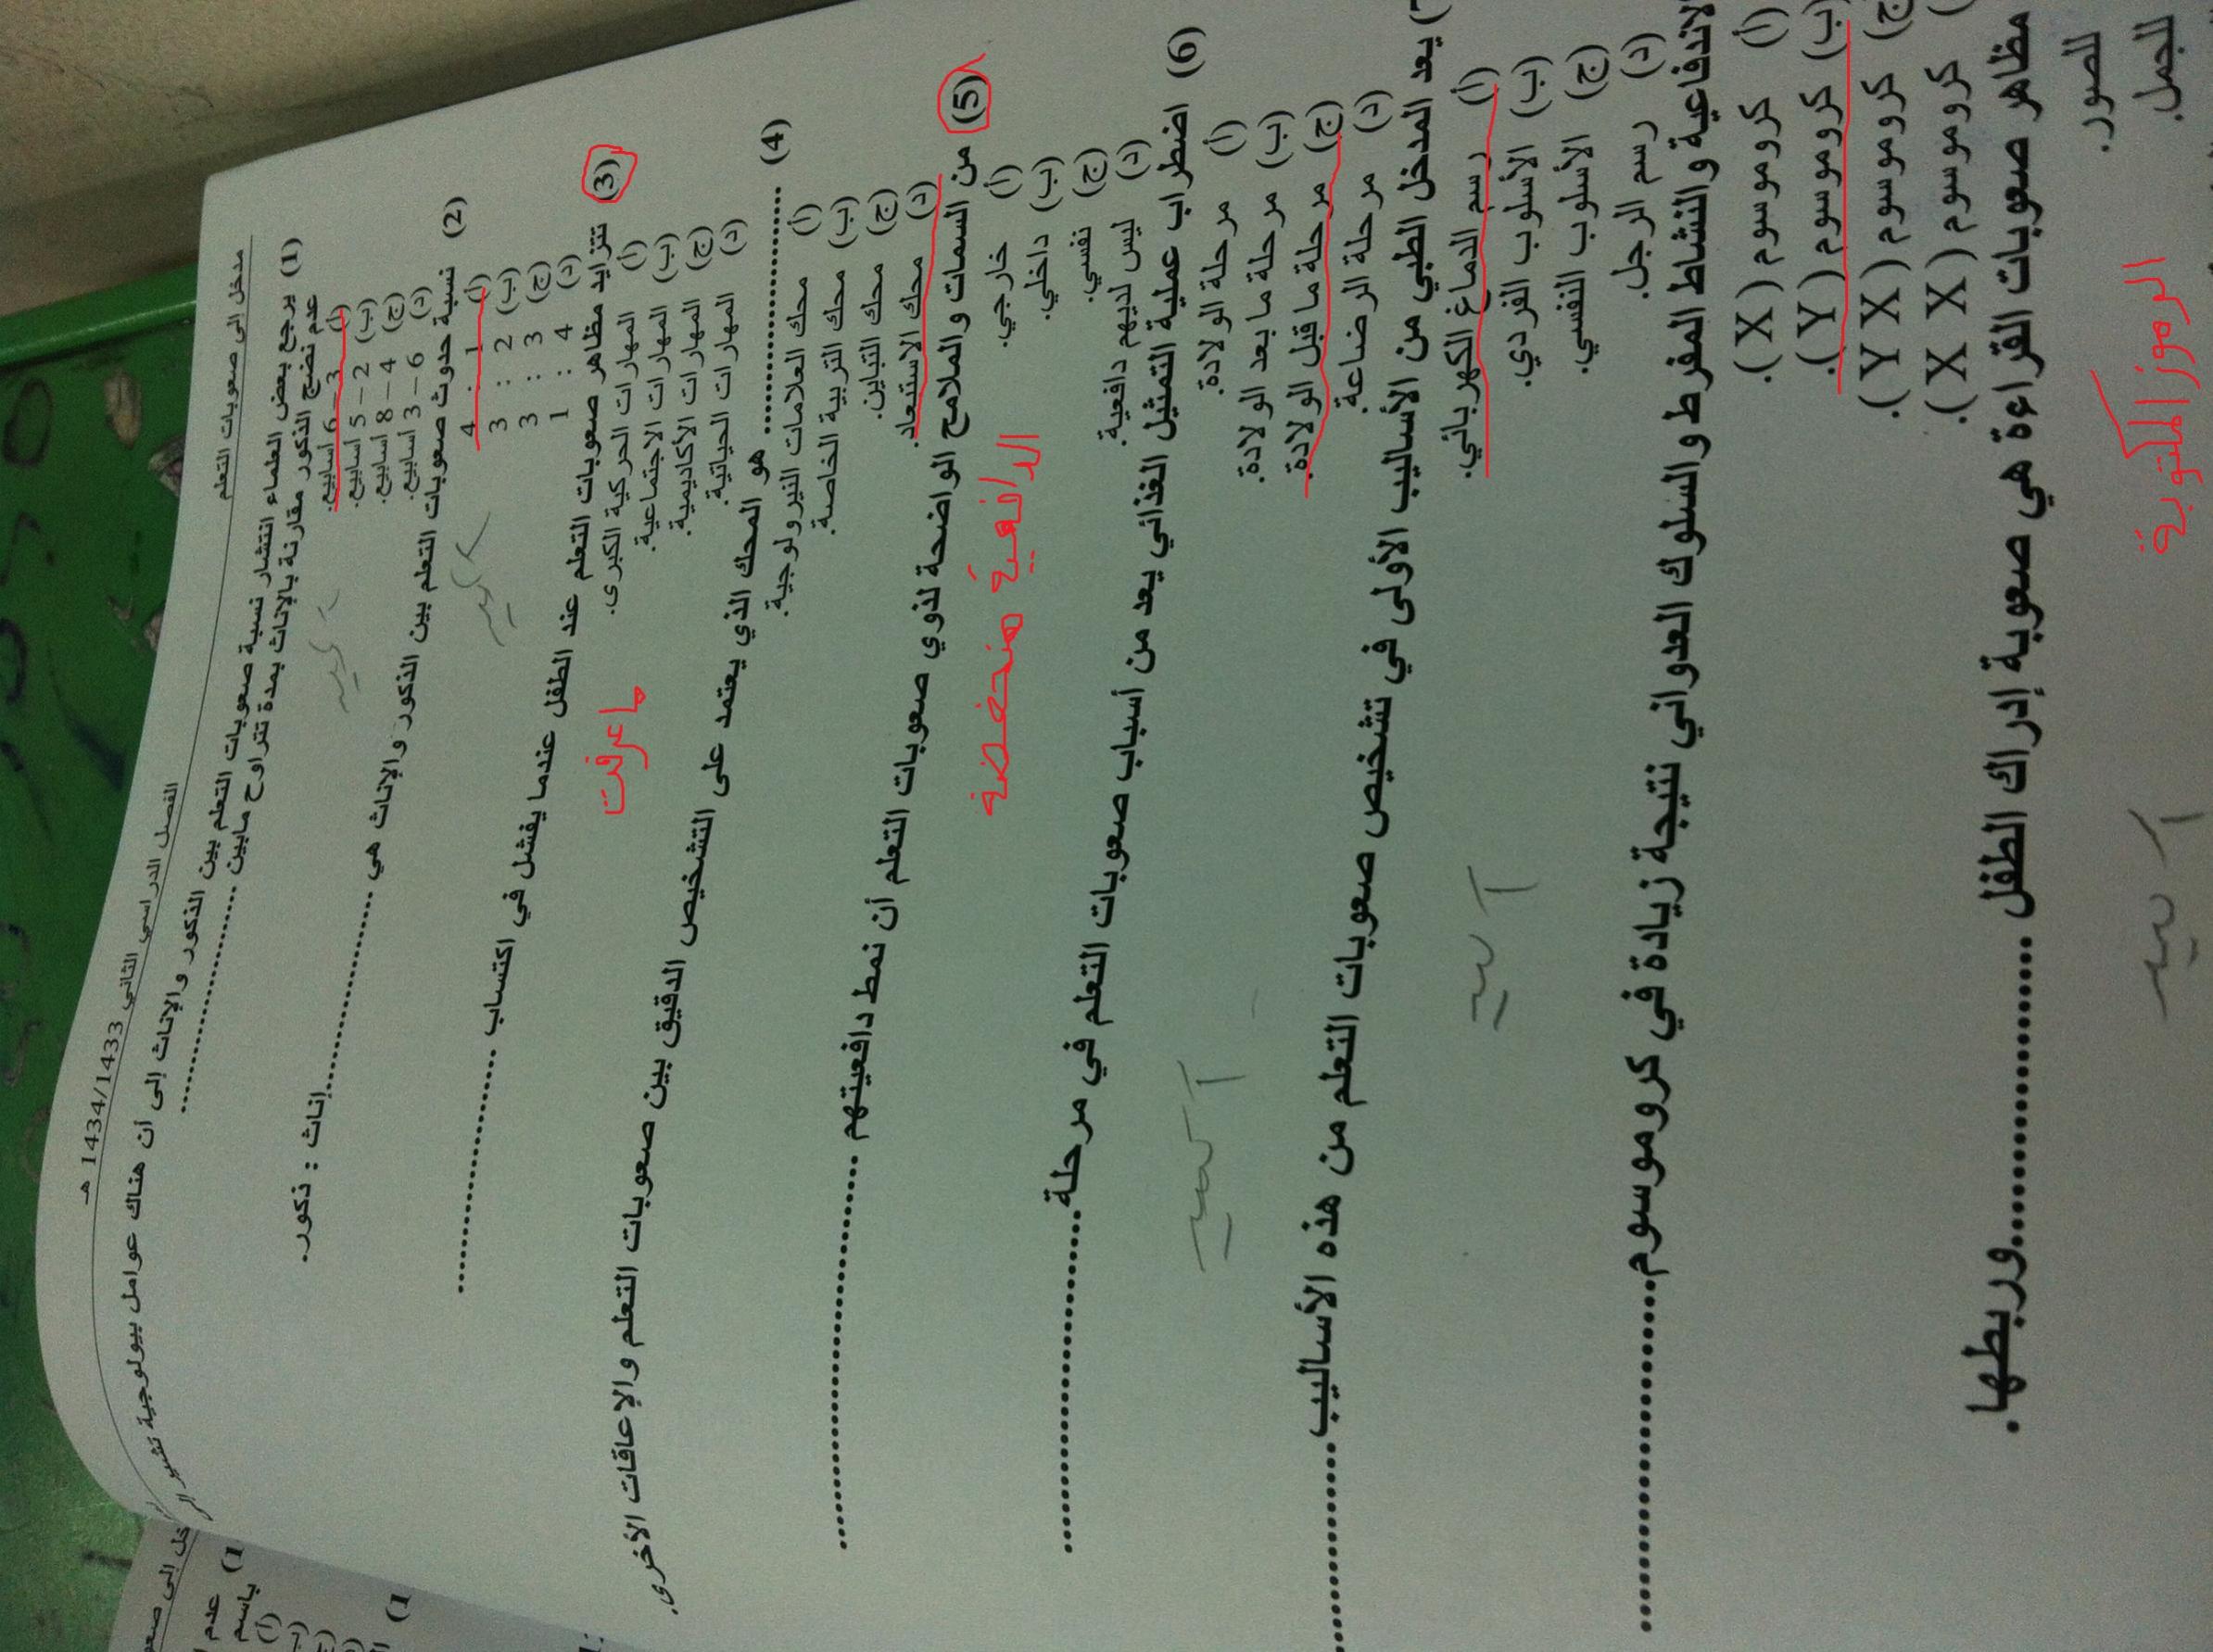 مدخل إلى صعوبات التعلم
الفصل الدراسي الثاني 1434/1433 هـ
(1) يرجع بعض العلماء انتشار نسبة صعوبات التعلم بين الذكور والإناث إلى أن هناك عوامل بيولوجية تشير إلى
عدم نضج الذكور مقارنة بالإناث بمدة تتراوح مابين ................................
(أ) 3 – 6 أسابيع.
(ب) 2 – 5 أسابيع.
(ج) 4 – 8 أسابيع.
(د) 6 – 3 أسابيع.
أكيد
(2) نسبة حدوث صعوبات التعلم بين الذكور والإناث هي ........................إناث : ذكور.
(أ) 1 : 4
(ب) 2 : 3
(ج) 3 : 3
(د) 4 : 1
أكيد
(3) تتزايد مظاهر صعوبات التعلم عند الطفل عندما يفشل في اكتساب ................................
(أ) المهارات الحركية الكبرى.
(ب) المهارات الاجتماعية.
(ج) المهارات الأكاديمية.
(د) المهارات الحياتية.
ما عرفت
(4) ............................ هو المحك الذي يعتمد على التشخيص الدقيق بين صعوبات التعلم والإعاقات الأخرى.
(أ) محك العلامات النيرولوجية.
(ب) محك التربية الخاصة.
(ج) محك التباين.
(د) محك الاستبعاد.
(5) من السمات والملامح الواضحة لذوي صعوبات التعلم أن نمط دافعيتهم ................................
(أ) خارجي.
(ب) داخلي.
(ج) نفسي.
(د) ليس لديهم دافعية.
الدافعية منخفضة
(6) اضطراب عملية التمثيل الغذائي يعد من أسباب صعوبات التعلم في مرحلة................................
(أ) مرحلة الولادة.
(ب) مرحلة ما بعد الولادة.
(ج) مرحلة ما قبل الولادة.
(د) مرحلة الرضاعة.
أكيد
يعد المدخل الطبي من الأساليب الأولى في تشخيص صعوبات التعلم من هذه الأساليب................................
(أ) رسم الدماغ الكهربائي.
(ب) الأسلوب الفردي.
(ج) الأسلوب النفسي.
(د) رسم الرجل.
أكيد
الاندفاعية والنشاط المفرط والسلوك العدواني نتيجة زيادة في كروموسوم................................
(أ) كروموسوم ( X ).
(ب) كروموسوم ( Y ).
(ج) كروموسوم ( Y X ).
كروموسوم ( X X ).
مظاهر صعوبات القراءة هي صعوبة إدراك الطفل ........................وربطها.
للصور.
للجمل.
الرموز المكتوبة
أكيد